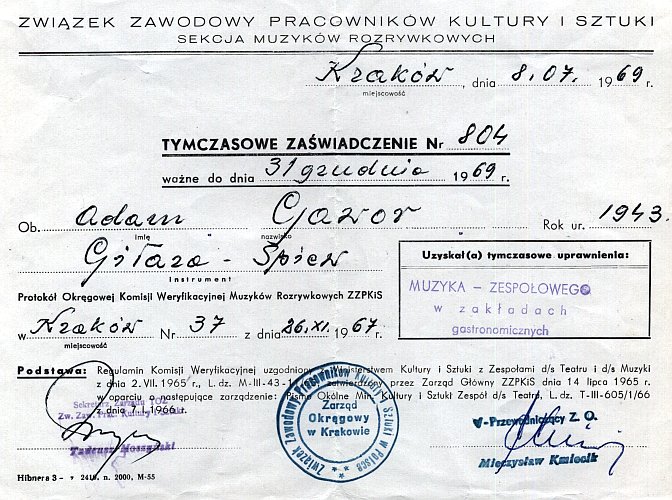 ZWIĄZEK ZAWODOWY PRACOWNIKÓW KULTURY I SZTUKI
SEKCJA MUZYKÓW ROZRYWKOWYCH
Kraków, dnia 8.07. 1969 r.
miejscowość
TYMCZASOWE ZAŚWIADCZENIE Nr 804
ważne do dnia 31 grudnia 1969 r.
Ob. Adam Gawor Rok ur. 1943.
imię nazwisko
Gitara - Śpiew
instrument
Uzyskał(a) tymczasowe uprawnienia:
MUZYKA – ZESPOŁOWEGO
w zakładach
gastronomicznych
Protokół Okręgowej Komisji Weryfikacyjnej Muzyków Rozrywkowych ZZPKiS
w Kraków Nr 37 z dnia 26.XI. 1967 r.
miejscowość
Podstawa: Regulamin Komisji Weryfikacyjnej uzgodniony z Ministerstwem Kultury i Sztuki z Zespołami d/s Teatru i d/s Muzyki
z dnia 2. VII. 1965 r., L. dz. M-III-43-1 zatwierdzony przez Zarząd Główny ZZPKiS dnia 14 lipca 1965 r.
w oparciu o następujące zarządzenie: Pismo Okólne Min. Kultury i Sztuki Zespół d/s Teatru, L. dz. T-III-605/1/66
z dnia 7.I.1966 r.
Sekretarz Zarządu
Zw. Zaw. Prac. Kultury i Sztuki
Tadeusz
Związek Zawodowy Pracowników Kultury i Sztuki w Polsce
Zarząd
Okręgowy
w Krakowie
V-Przewodniczący Z. O.
Mieczysław Kmiecik
Hibnera 3 - n. 2000, M-55